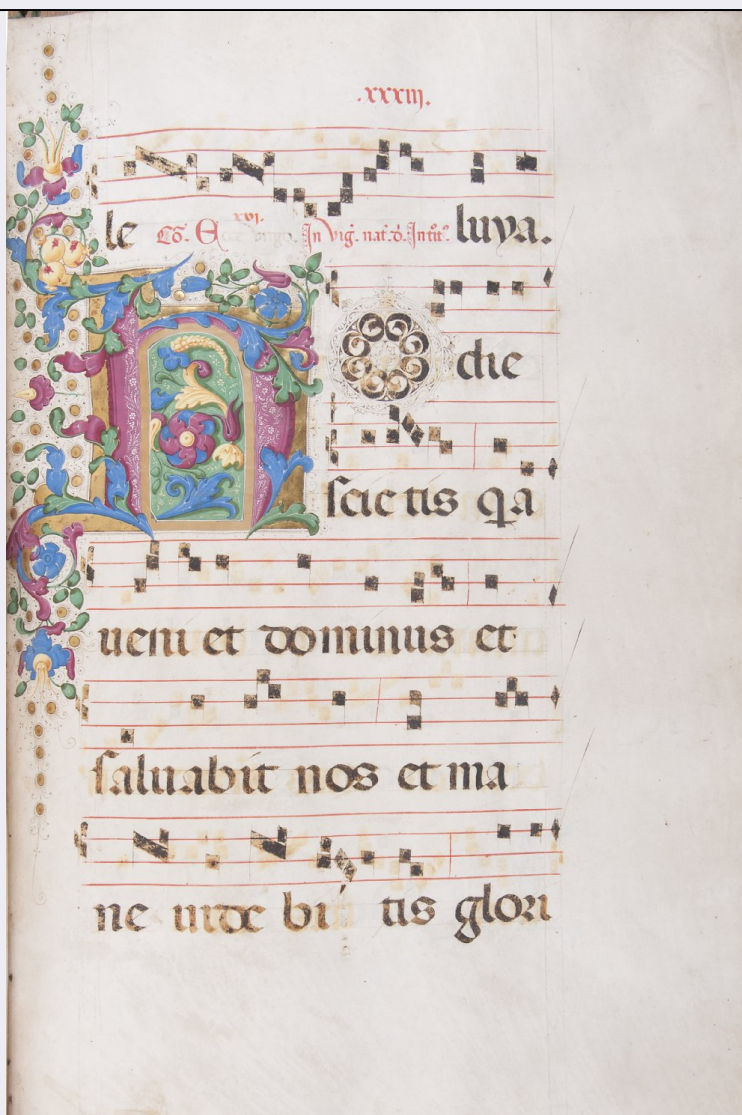 .xxxiij.
le Cō. Ecce virgo. xvj. In vig̅. nat̅. d̅. Intt̅. luya.
HO die
scie tis q̅a
ueni et dominus et
saluabit nos et ma
ne uide bi tis glori